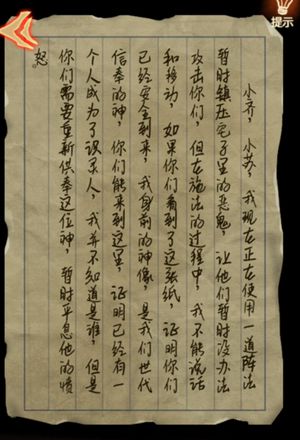 提示
小齐,小苏,我现在正在使用一道阵法
暂时镇压宅子里的恶鬼,让他们暂时没办法
攻击你们,但在施法的过程中,我不能说话
和移动,如果你们看到了这张纸,证明你们
已经安全到来,我身前的神像,是我们世代
信奉的神,你们能来到这里,证明已经有一
个人成为了误杀人,我并不知道是谁,但是
你们需要重新供奉这位神,暂时平息他的愤
怒。